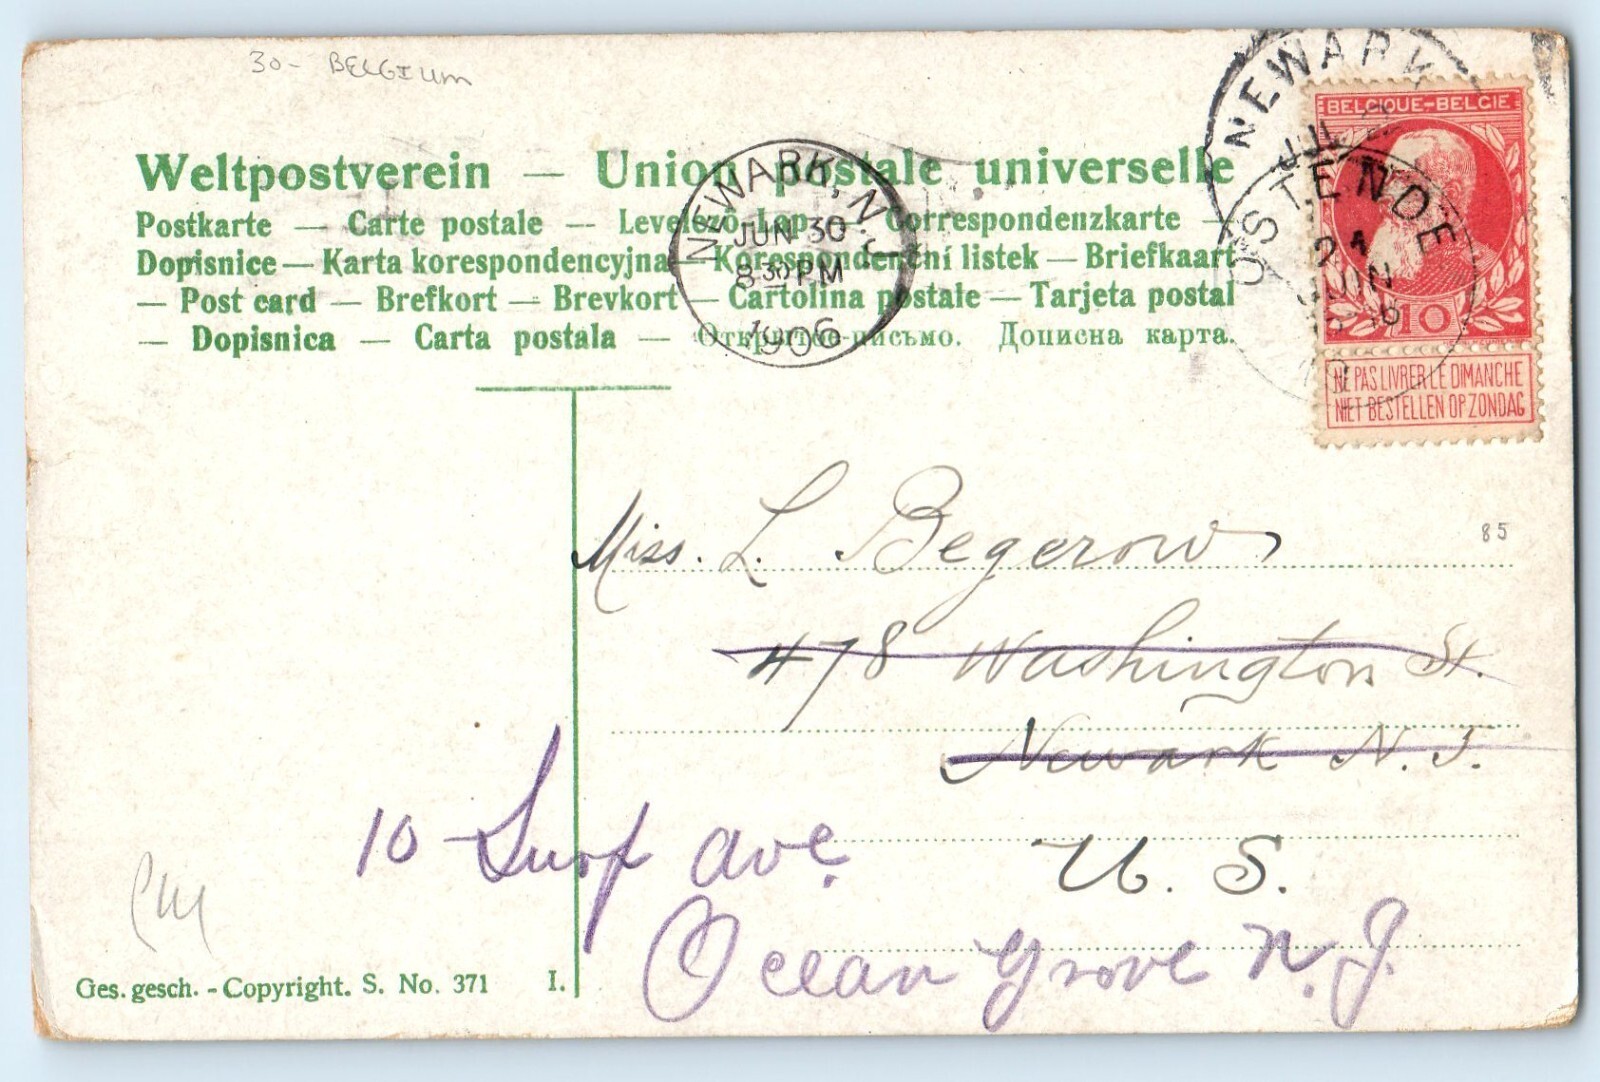 30- BELGIUM
Weltpostverein — Union postale universelle
Postkarte — Carte postale — Levelező-Lap — Correspondenzkarte —
Dopisnice — Karta korespondencyjna — Korespondenční listek — Briefkaart
— Post card — Brefkort — Brevkort — Cartolina postale — Tarjeta postal
— Dopisnica — Carta postala — Открытое письмо. Дописна карта.
NEWARK, N.J.
JUN 30
8 30 PM
1906
NEWARK
OSTENDE
21
JUN
BELGIQUE-BELGIE
10
NE PAS LIVRER LE DIMANCHE
NIET BESTELLEN OP ZONDAG
85
Miss. L. Begerow
478 Washington St.
Newark N.J.
U. S.
10 Surf ave.
Ocean Grove N.J.
Ges. gesch. - Copyright. S. No. 371 I.